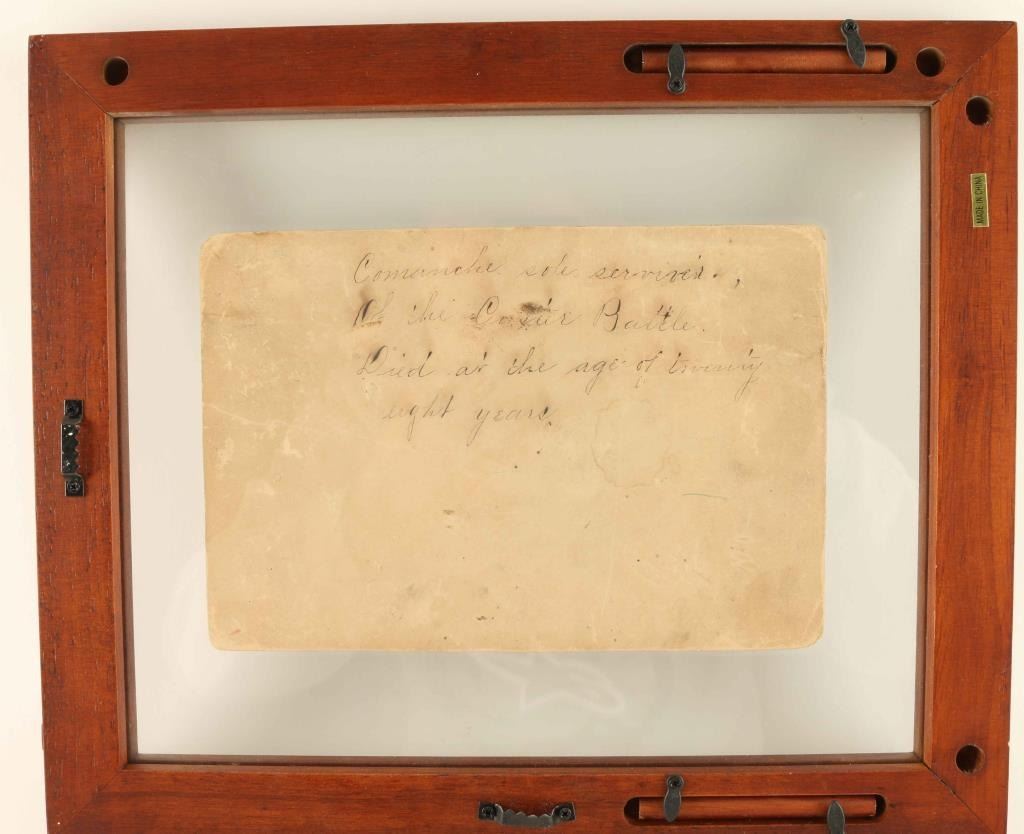 Comanche sole serviver.,
Of the Custer Battle.
Died at the age of twenty
eight years.
MADE IN CHINA